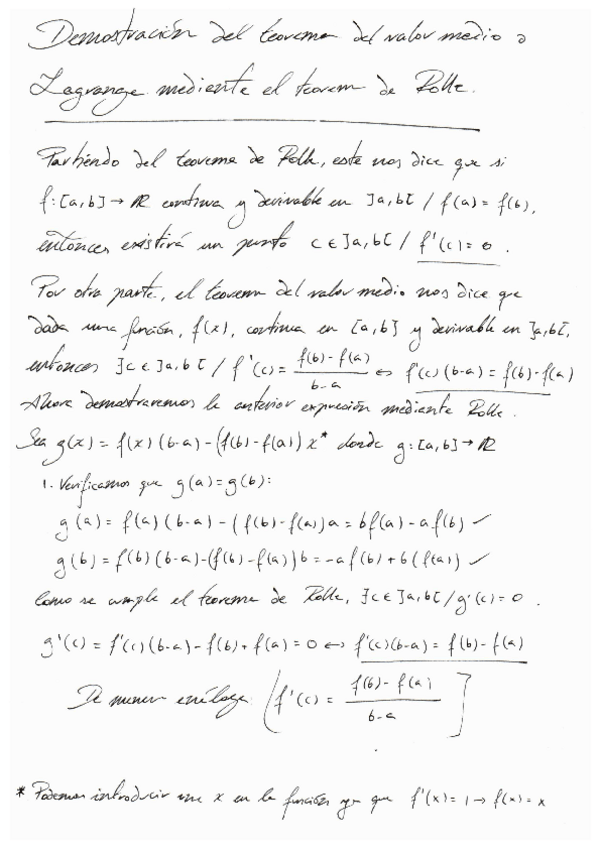 Demostración del teorema del valor medio o
Lagrange mediante el teorem de Rolle.
Partiendo del teorema de Rolle, este nos dice que si
f: [a,b] → R continua y derivable en ]a,b[ / f(a) = f(b),
entonces existirá un punto c ∈ ]a,b[ / f'(c) = 0.
Por otra parte, el teorema del valor medio nos dice que
dada una función, f(x), continua en [a,b] y derivable en ]a,b[,
entonces ∃c ∈ ]a,b[ / f'(c) = f(b)-f(a) / b-a ⇔ f'(c)(b-a) = f(b)-f(a)
Ahora demostraremos la anterior expresión mediante Rolle.
Sea g(x) = f(x)(b-a) - (f(b)-f(a))x* donde g: [a,b] → R
1. Verificamos que g(a) = g(b):
g(a) = f(a)(b-a) - (f(b)-f(a))a = bf(a) - af(b) ✓
g(b) = f(b)(b-a) - (f(b)-f(a))b = -af(b) + b(f(a)) ✓
Como se cumple el teorema de Rolle, ∃c ∈ ]a,b[ / g'(c) = 0.
g'(c) = f'(c)(b-a) - f(b) + f(a) = 0 ↔ f'(c)(b-a) = f(b) - f(a)
De maner análoga: [f'(c) = f(b)-f(a) / b-a]
* Podemos introducir una x en la función ya que f'(x) = 1 → f(x) = x